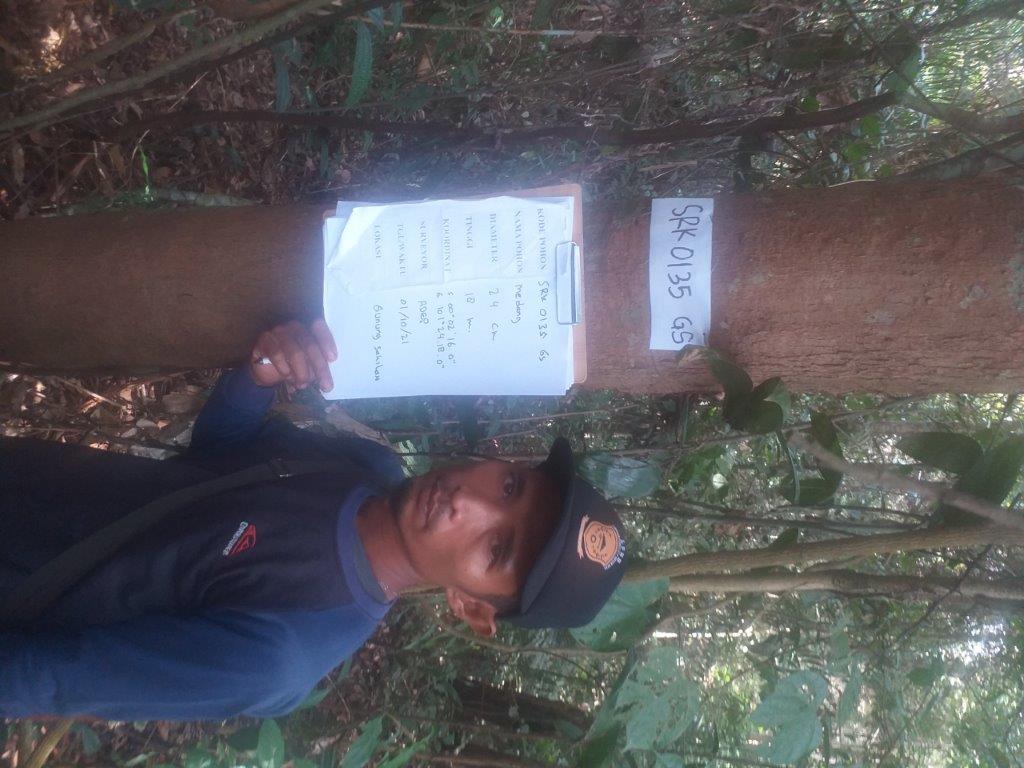 SRK 0135 GS
KODE POHON SRK 0135 GS
NAMA POHON medang
DIAMETER 24 cm
TINGGI 18 m.
KOORDINAT S 00° 02' 16.0"
E 101° 24. 18.0"
SURVEYOR
TGL/WAKTU 01/10/21
LOKASI Gunung Sahilan